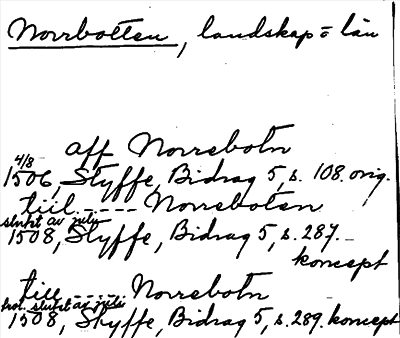 Norrbotten, landskap o län
aff Norrebotn
4/8
1506, Styffe, Bidrag 5, s. 108. orig.
tiil ----- Norreboten
slutet av juli
1508, Styffe, Bidrag 5, s. 287.
koncept
till ----- Norrebotn
trol. slutet av juli
1508, Styffe, Bidrag 5, s. 289. koncept